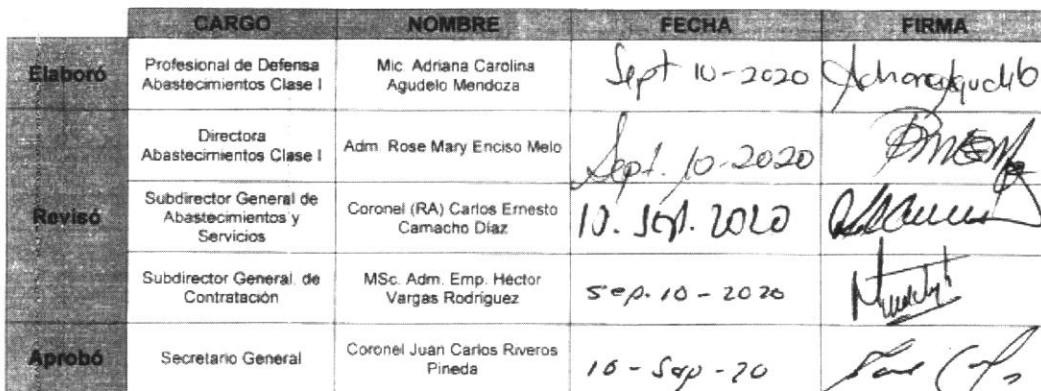 CARGO NOMBRE FECHA FIRMA
Elaboró
Profesional de Defensa
Abastecimientos Clase I
Mic. Adriana Carolina
Agudelo Mendoza
Sept 10-2020
Directora
Abastecimientos Clase I
Adm. Rose Mary Enciso Melo
Sept. 10-2020
Revisó
Subdirector General de
Abastecimientos y
Servicios
Coronel (RA) Carlos Ernesto
Camacho Díaz
10. Sept. 2020
Subdirector General de
Contratación
MSc. Adm. Emp. Héctor
Vargas Rodríguez
Sep. 10 - 2020
Aprobó
Secretario General
Coronel Juan Carlos Riveros
Pineda
- Sep - 20